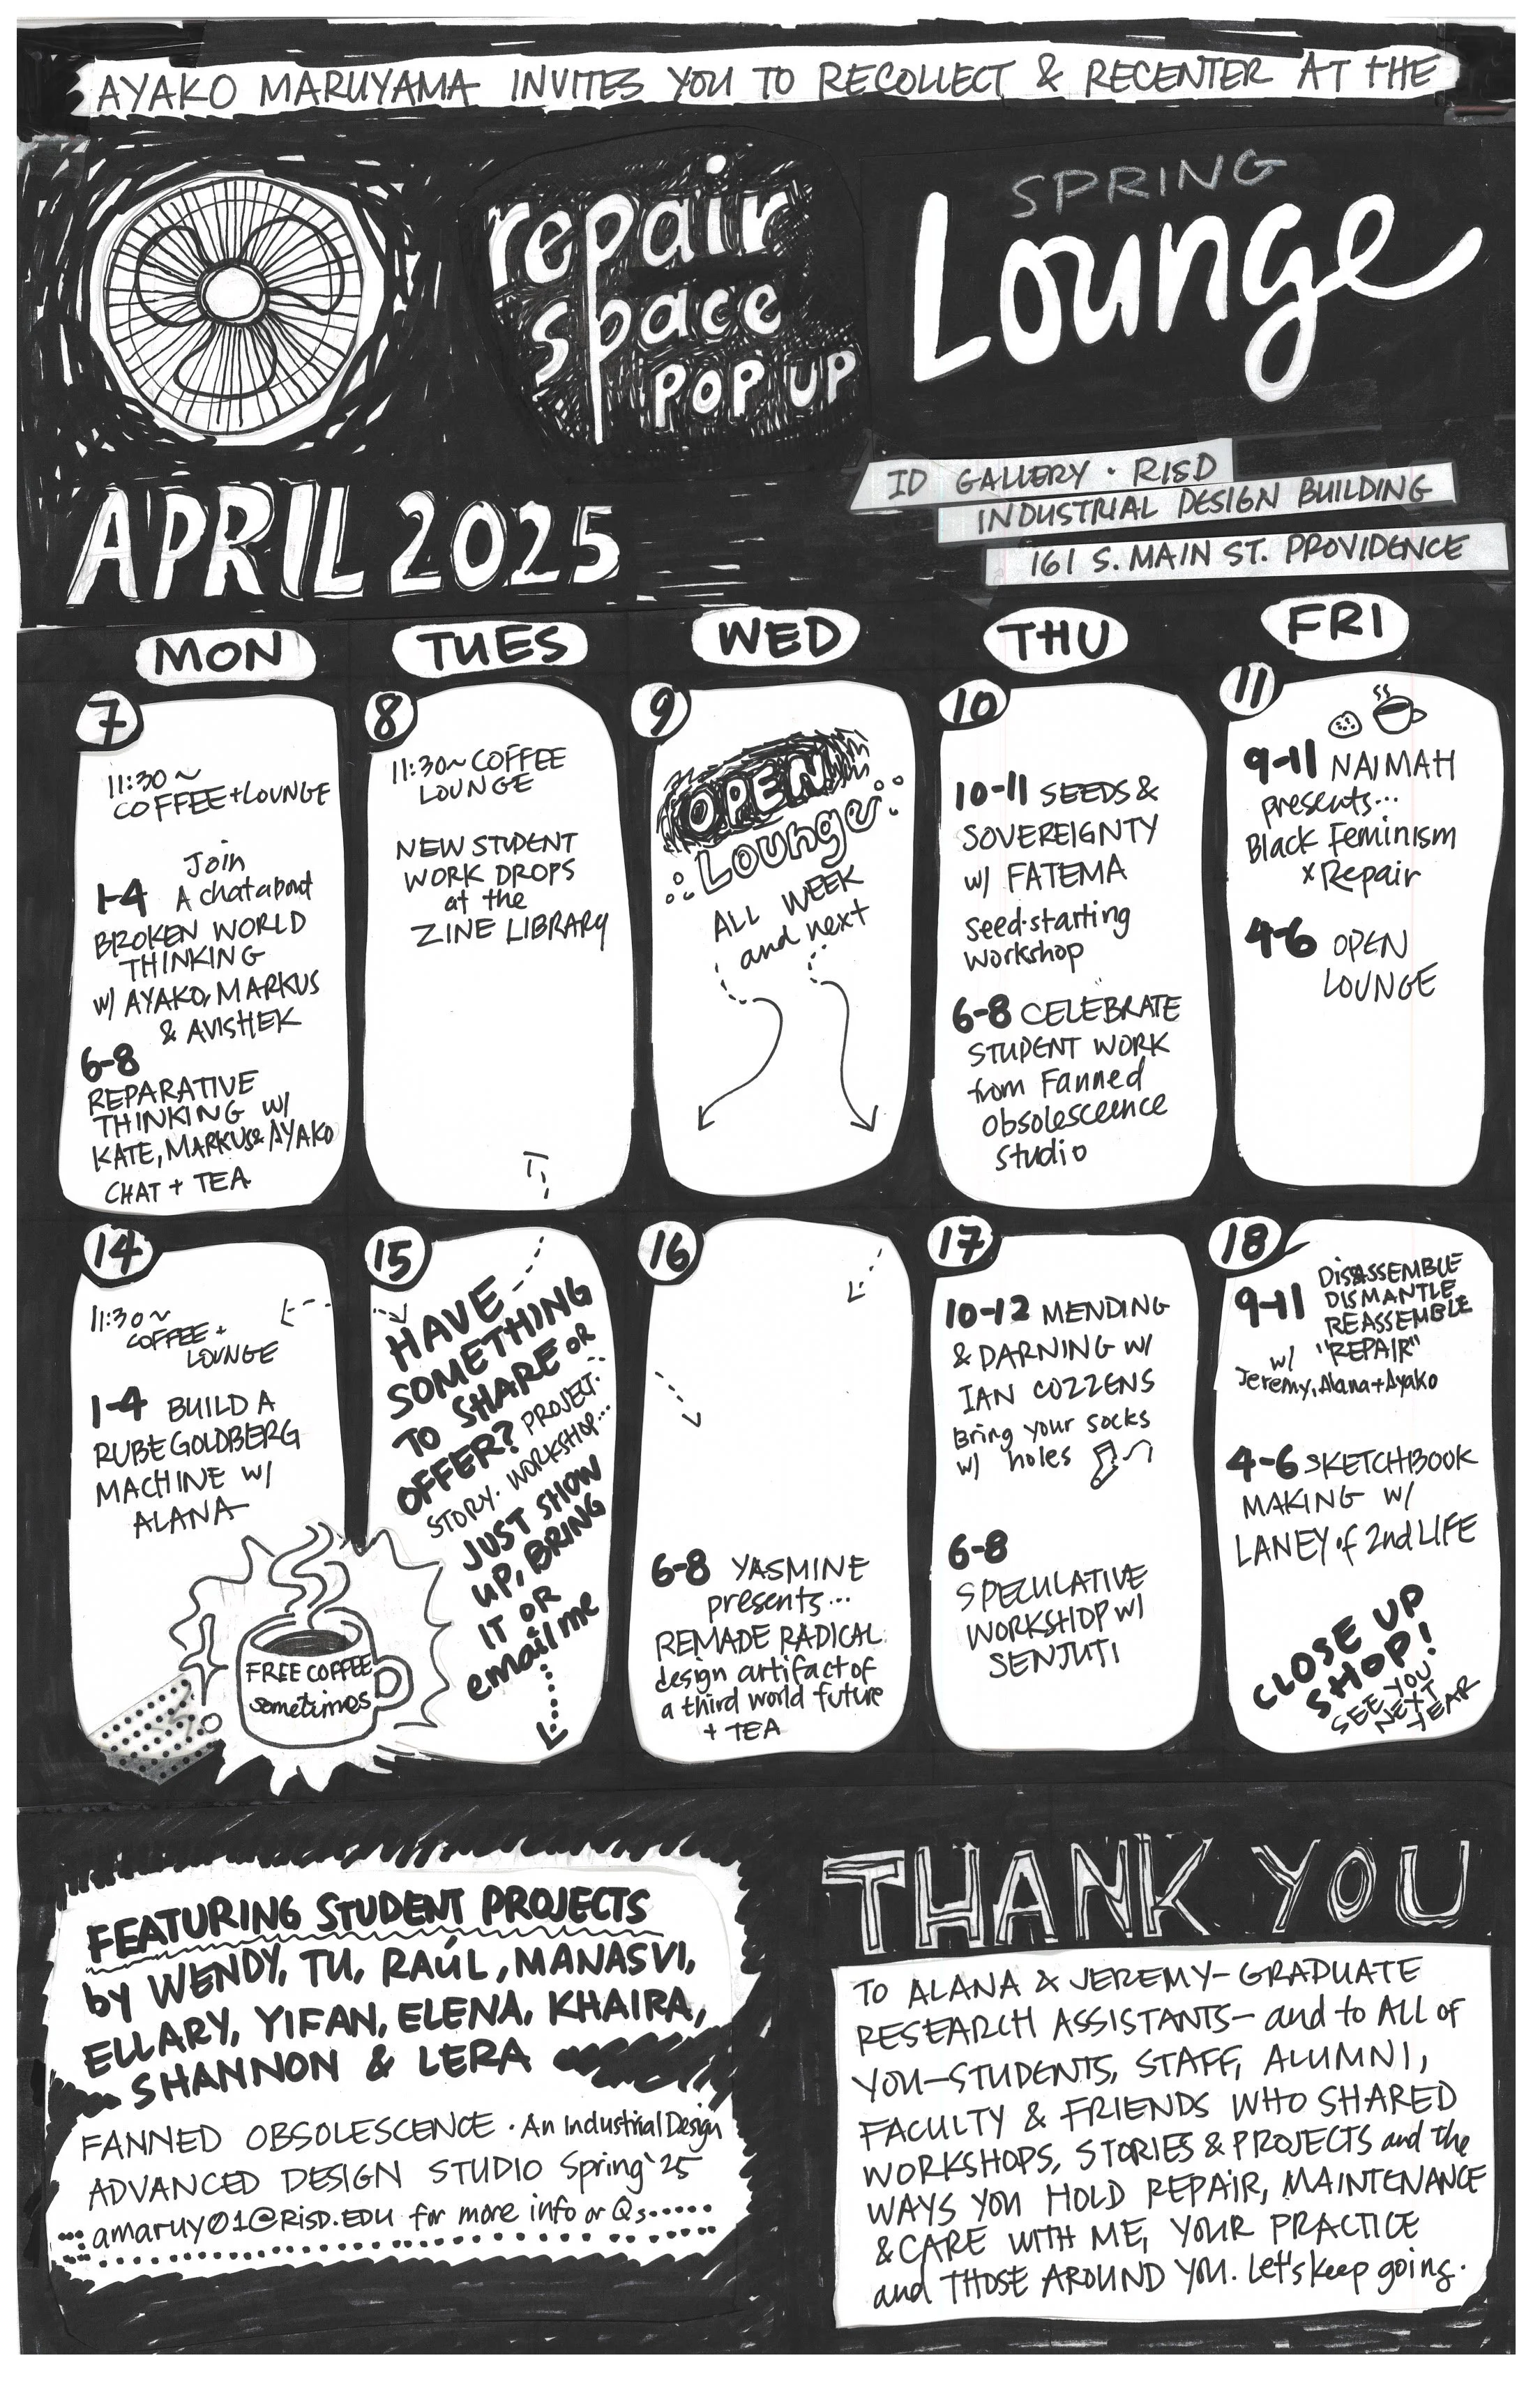 AYAKO MARUYAMA INVITES YOU TO RECOLLECT & RECENTER AT THE
repair
space
POP UP
SPRING
Lounge
ID GALLERY · RISD
INDUSTRIAL DESIGN BUILDING
161 S. MAIN ST. PROVIDENCE
APRIL 2025
MON
TUES
WED
THU
FRI
7
11:30~
COFFEE+LOUNGE
Join
1-4 A chat about
BROKEN WORLD
THINKING
w/ AYAKO, MARKUS
& AVISHEK
6-8
REPARATIVE
THINKING w/
KATE, MARKUS & AYAKO
CHAT + TEA
8
11:30~ COFFEE
LOUNGE
NEW STUDENT
WORK DROPS
at the
ZINE LIBRARY
9
OPEN
Lounge
ALL WEEK
and next
10
10-11 SEEDS &
SOVEREIGNTY
w/ FATEMA
Seed-starting
workshop
6-8 CELEBRATE
STUDENT WORK
from Fanned
Obsolesceence
Studio
11
9-11 NAIMAH
presents...
Black Feminism
x Repair
4-6 OPEN
LOUNGE
14
11:30~
COFFEE +
LOUNGE
1-4 BUILD A
RUBE GOLDBERG
MACHINE w/
ALANA
FREE COFFEE
sometimes
15
HAVE
SOMETHING
TO SHARE OR
OFFER? PROJECT.
STORY. WORKSHOP...
JUST SHOW
UP, BRING
IT OR
email me
16
6-8 YASMINE
presents...
REMADE RADICAL
design artifact of
a third world future
+ TEA
17
10-12 MENDING
& DARNING w/
IAN COZZENS
Bring your socks
w/ holes
6-8
SPECULATIVE
WORKSHOP w/
SENJUTI
18
9-11 DISASSEMBLE
DISMANTLE
REASSEMBLE
"REPAIR"
w/
Jeremy, Alana + Ayako
4-6 SKETCHBOOK
MAKING w/
LANEY of 2nd LIFE
CLOSE UP
SHOP!
SEE YOU
NEXT
YEAR
FEATURING STUDENT PROJECTS
by WENDY, TU, RAÚL, MANASVI,
ELLARY, YIFAN, ELENA, KHAIRA,
SHANNON & LERA
FANNED OBSOLESCENCE · An Industrial Design
ADVANCED DESIGN STUDIO Spring '25
amaruy01@RISD.EDU for more info or Qs
THANK YOU
TO ALANA & JEREMY—GRADUATE
RESEARCH ASSISTANTS— and to ALL of
YOU—STUDENTS, STAFF, ALUMNI,
FACULTY & FRIENDS WHO SHARED
WORKSHOPS, STORIES & PROJECTS and the
WAYS YOU HOLD REPAIR, MAINTENANCE
& CARE WITH ME, YOUR PRACTICE
and THOSE AROUND YOU. Let's keep going.